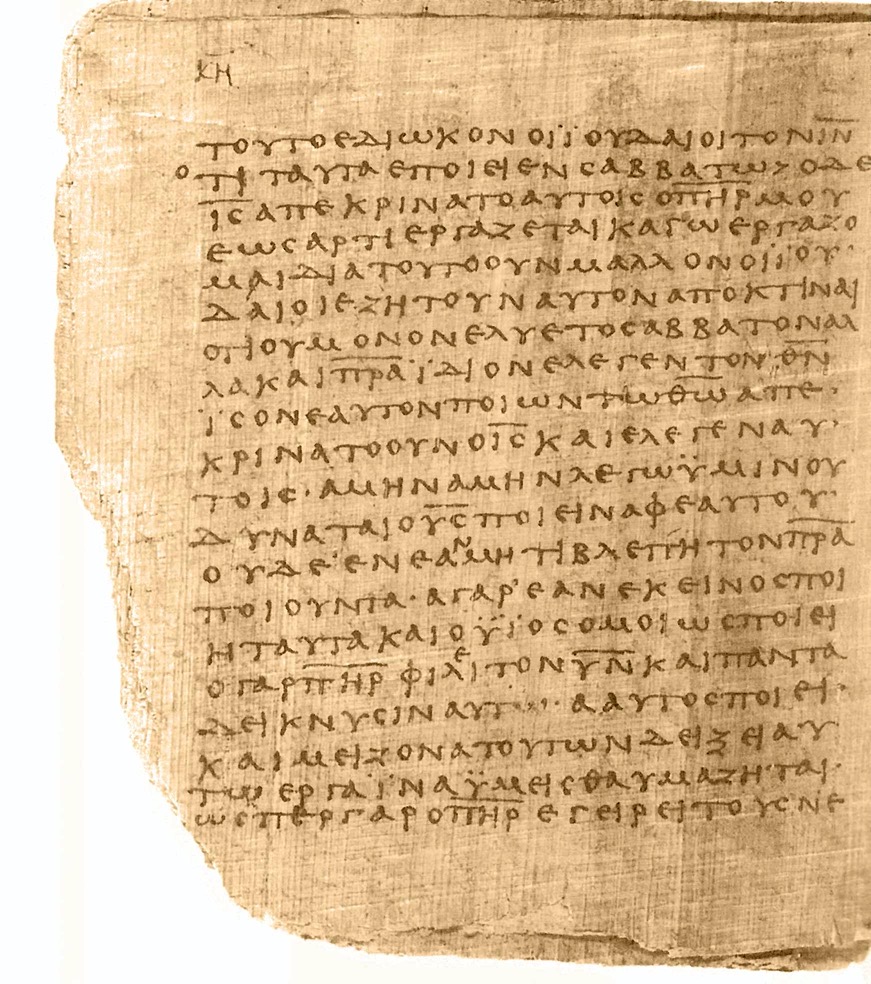 ΚΗ
ΤΟΥΤΟΕΔΙωΚΟΝΟΙΪΟΥΔΑΙΟΙΤΟΝΙ̅Ν̅
ΟΤΙΤΑΥΤΑΕΠΟΙΕΙΕΝϹΑΒΒΑΤω
Ι̅Ϲ̅ΑΠΕΚΡΙΝΑΤΟΑΥΤΟΙϹΟΠ̅Η̅Ρ̅ΜΟΥ
ΕωϹΑΡΤΙΕΡΓΑΖΕΤΑΙΚΑΓωΕΡΓΑΖΟ
ΜΑΙΔΙΑΤΟΥΤΟΟΥΝΜΑΛΛΟΝΟΙΪΟΥ·
ΔΑΙΟΙΕΖΗΤΟΥΝΑΥΤΟΝΑΠΟΚΤΙΝΑΙ
ΟΤΙΟΥΜΟΝΟΝΕΛΥΕΤΟϹΑΒΒΑΤΟΝΑΛ
ΛΑΚΑΙΠ̅Ρ̅Α̅ΪΔΙΟΝΕΛΕΓΕΝΤΟΝΘ̅Ν̅
ΪϹΟΝΕΑΥΤΟΝΠΟΙωΝΤωΘ̅ω̅ΑΠΕ·
ΚΡΙΝΑΤΟΟΥΝΟΙ̅Ϲ̅ΚΑΙΕΛΕΓΕΝΑΥ·
ΤΟΙϹ·ΑΜΗΝΑΜΗΝΛΕΓωΫΜΙΝΟΥ
ΔΥΝΑΤΑΙΟΥ̅Ϲ̅ΠΟΙΕΙΝΑΦΕΑΥΤΟΥ·
ΟΥΔΕΕΝΕΑΝΜΗΤΙΒΛΕΠΗΤΟΝΠ̅Ρ̅Α̅
ΠΟΙΟΥΝΤΑ·ΑΓΑΡ'ΕΑΝΕΚΕΙΝΟϹΠΟΙ
ΗΤΑΥΤΑΚΑΙΟΫΪΟϹΟΜΟΙωϹΠΟΙΕΙ
ΟΓΑΡΠ̅Η̅Ρ̅ΦΙΛΕΙΤΟΝΥ̅Ν̅ΚΑΙΠΑΝΤΑ
ΔΕΙΚΝΥϹΙΝΑΑΥΤΟϹΠΟΙΕΙ·
ΚΑΙΜΕΙΖΟΝΑΤΟΥΤωΝΔΕΙΞΕΙΑΥ
ΤωΕΡΓΑΪΝΑΫΜΕΙϹΘΑΥΜΑΖΗΤΑΙ·
ωϹΠΕΡΓΑΡΟΠ̅Η̅Ρ̅ΕΓΕΙΡΕΙΤΟΥϹΝΕ